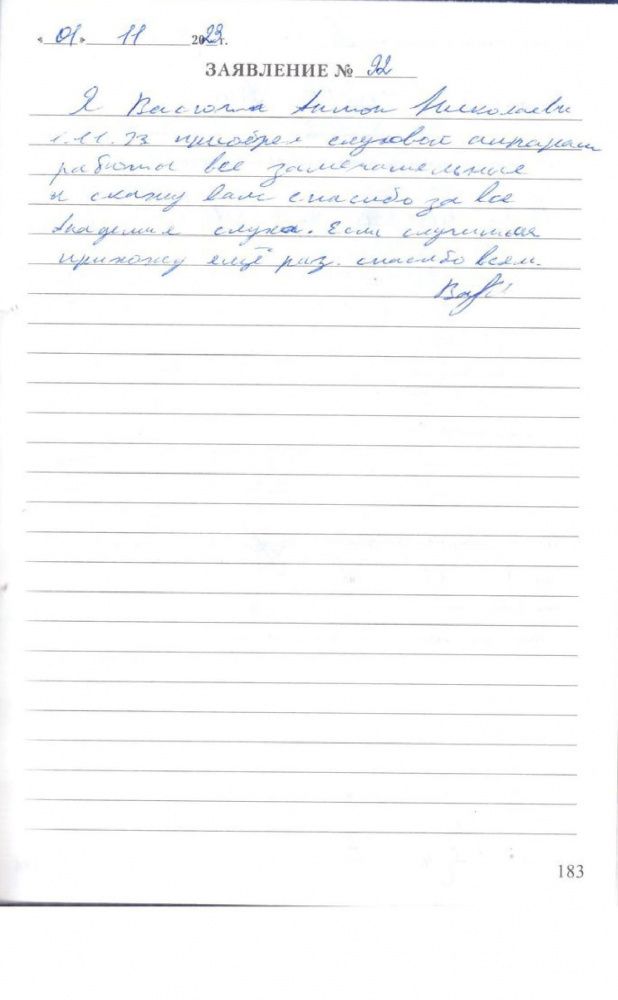 « 01 » 11 2023г.
ЗАЯВЛЕНИЕ № 92
Я Антон Николаеви
1.11.23 приобрел слуховой аппарат
работы все замечательные
и скажу вам спасибо за все
Академия слуха. Если случиться
прихожу ещё раз. спасибо всем.
183